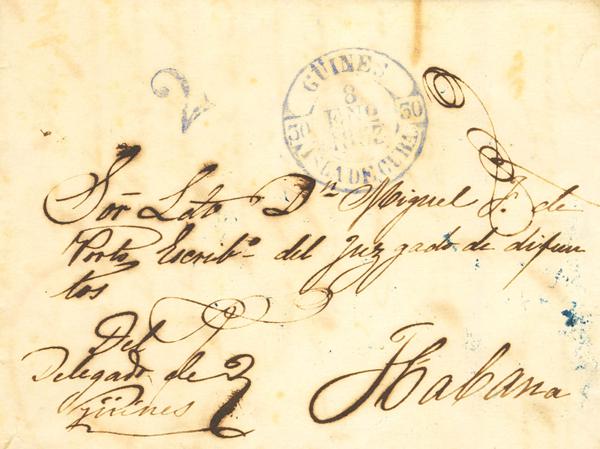 2
GÜINES
8
ENO
1852
30 30
ISLA DE CUBA
Sor Ldo Dn Miguel J. de
Porto Escribo del Juzgado de difun
tos
Del
Delegado de
Güines
Habana